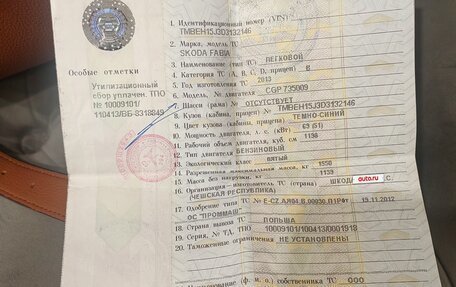 1. Идентификационный номер (VIN)
TMBEH15J3D3132146
2. Марка, модель ТС
SKODA FABIA
3. Наименование (тип ТС) ЛЕГКОВОЙ
4. Категория ТС (A, B, C, D, прицеп) B
5. Год изготовления ТС 2013
6. Модель, № двигателя CGP 735009
7. Шасси (рама) № ОТСУТСТВУЕТ
8. Кузов (кабина, прицеп) № TMBEH15J3D3132146
9. Цвет кузова (кабины, прицепа) ТЕМНО-СИНИЙ
10. Мощность двигателя, л. с. (кВт) 69 (51)
11. Рабочий объем двигателя, куб. см 1198
12. Тип двигателя БЕНЗИНОВЫЙ
13. Экологический класс ПЯТЫЙ
14. Разрешенная максимальная масса, кг 1550
15. Масса без нагрузки, кг 1139
16. Организация — изготовитель ТС (страна) ШКОДА
(ЧЕШСКАЯ РЕСПУБЛИКА)
17. Одобрение типа ТС № E-CZ.
19.11.2012
ОС "ПРОММАШ"
18. Страна вывоза ТС ПОЛЬША
19. Серия, № ТД, ТПО 10009101/110413/0001918
20. Таможенные ограничения НЕ УСТАНОВЛЕНЫ
(ф. и. о.) собственника ТС ООО
Особые отметки
Утилизационный
сбор уплачен. ТПО
№ 10009101/
110413/ВБ-8318849
auto.ru